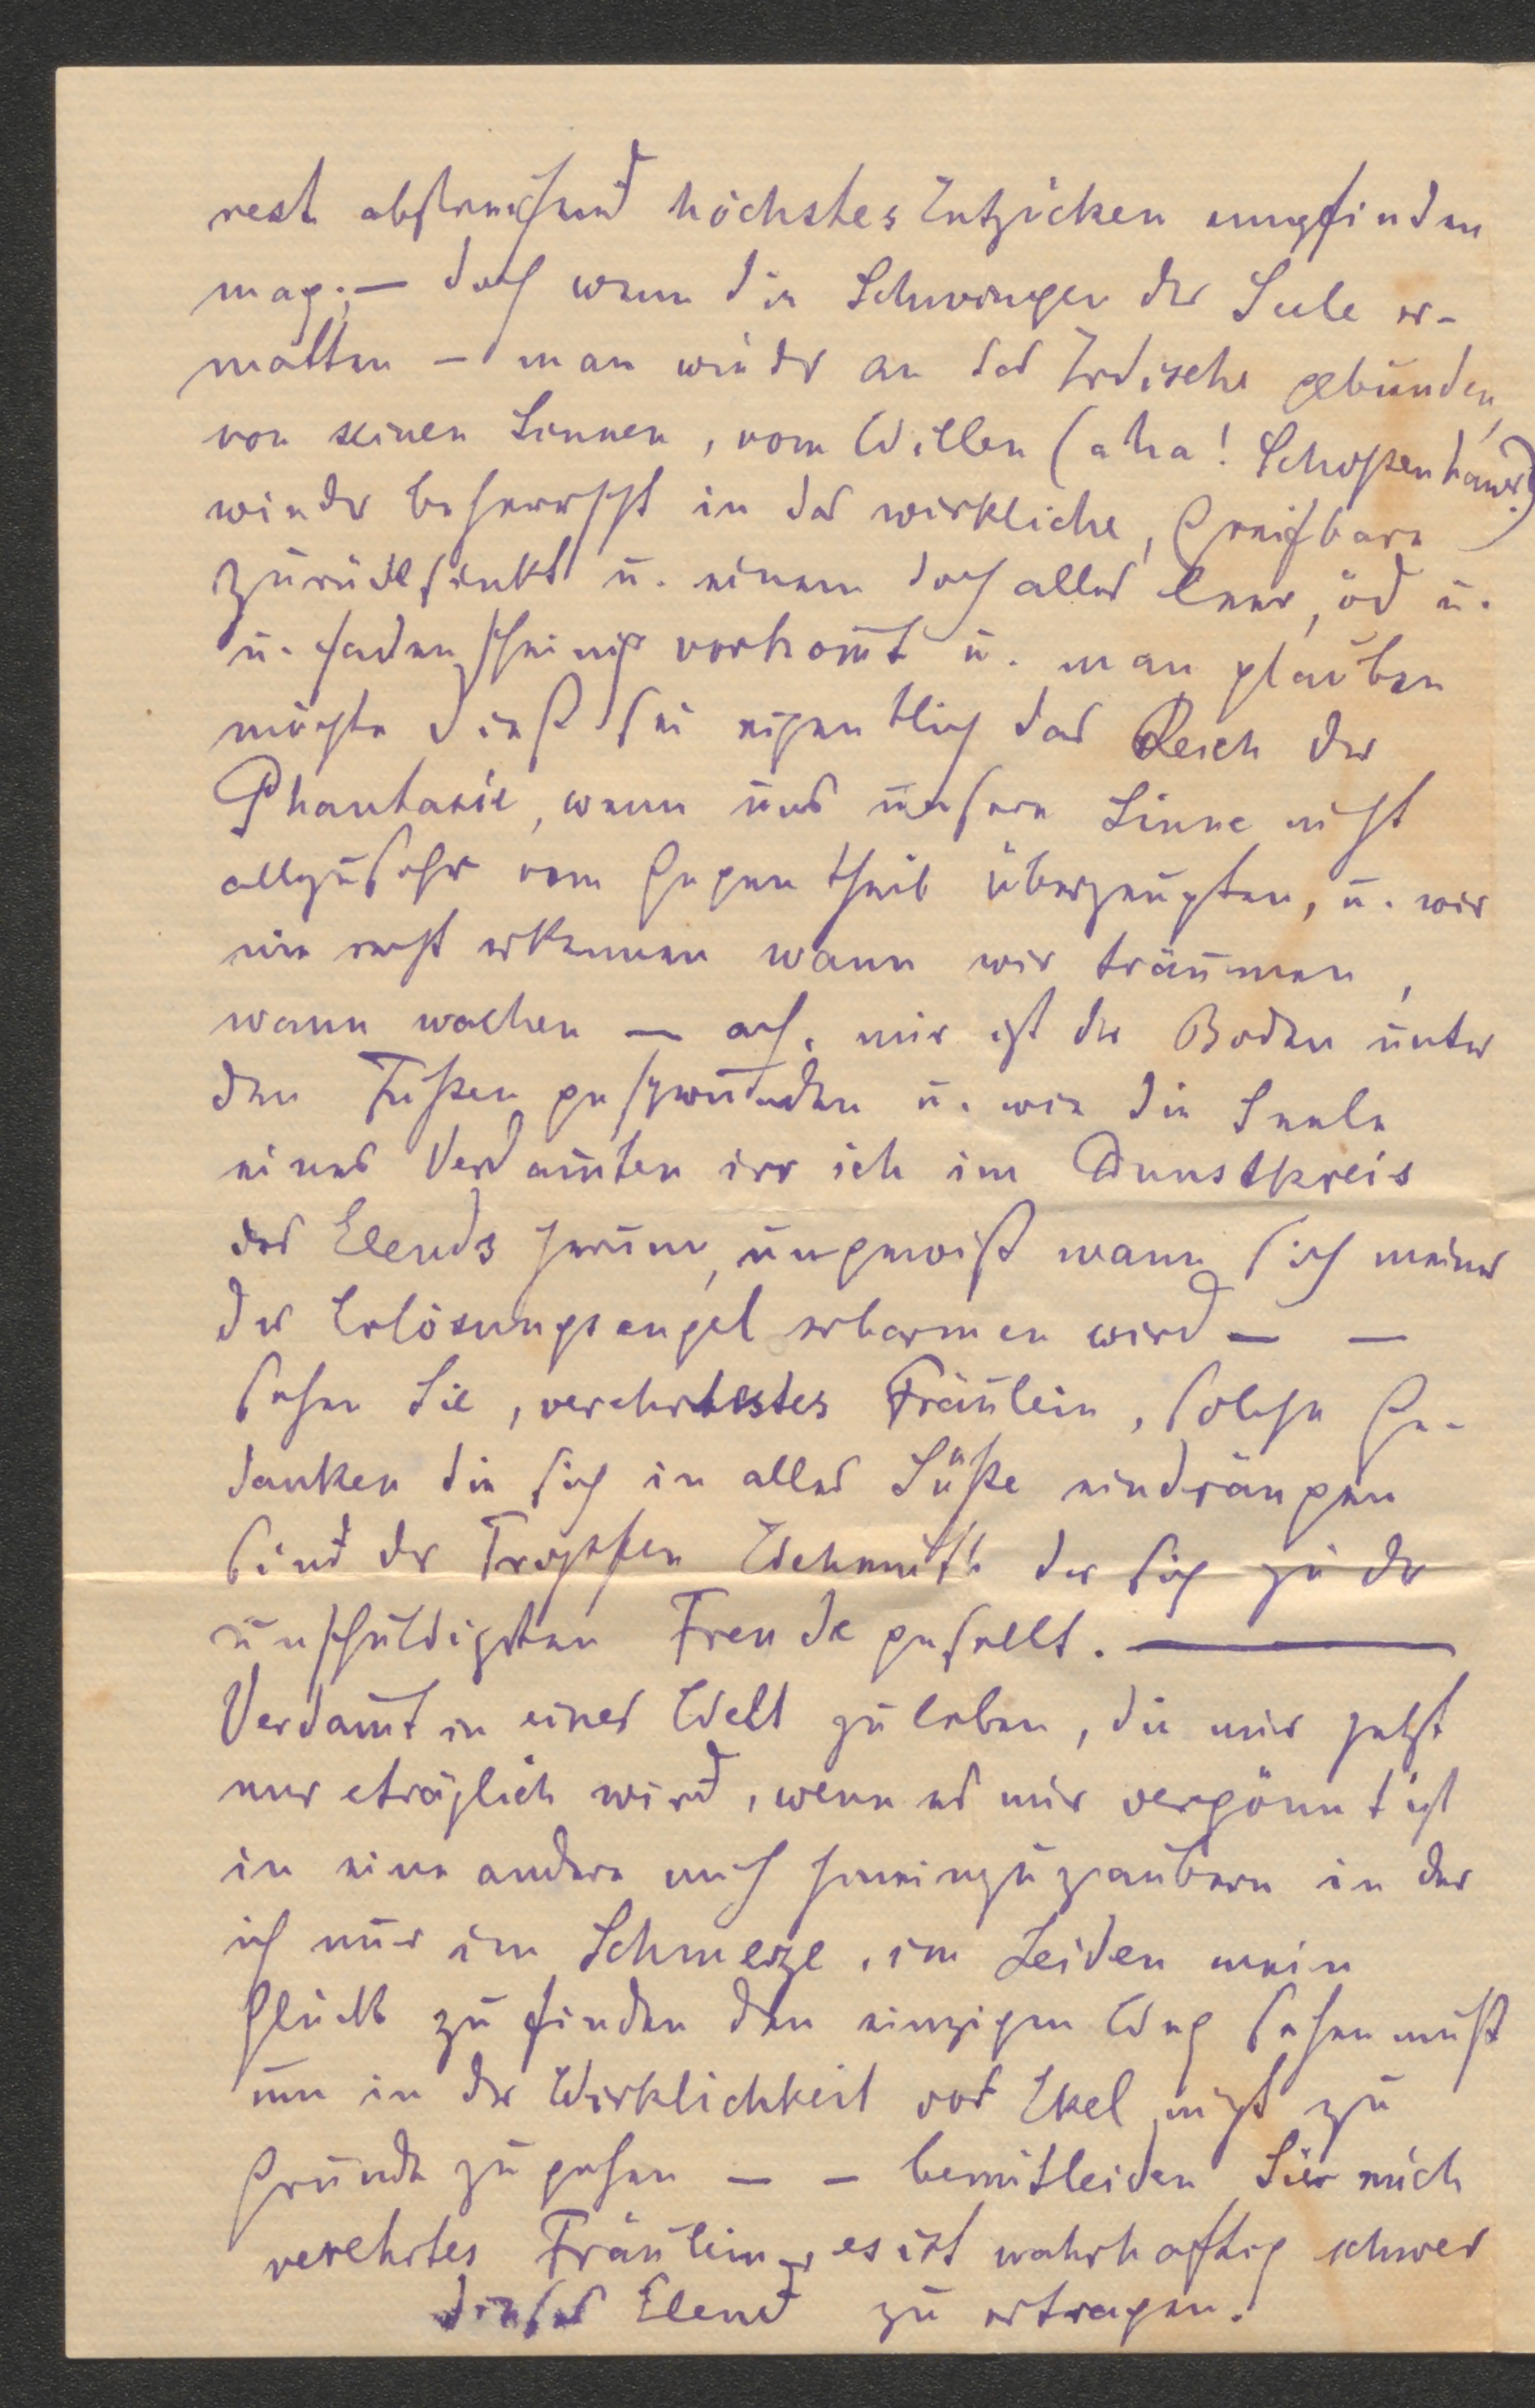 rest abstreifend höchstes Entzücken empfinden
mag; — doch wenn die Schwingen der Seele er-
matten — man wieder an das Irdische gebunden,
von seinen Sinnen, vom Willen (aha! Schoppenhauer!)
wieder beherrscht in das wirkliche, Greifbare
zurücksinkt u. einem doch alles leer, öd u.
u. fadenscheinig vorkom̅t u. man glauben
möchte dieß sei eigentlich das Reich der
Phantasie, wenn uns unsere Sinne nicht
allzusehr vom Gegentheil überzeugten, u. wir
nie recht erkennen wann wir träumen,
wann wachen — ach, mir ist der Boden unter
den Füßen geschwunden u. wie die Seele
eines Verdam̅ten irr ich im Dunstkreis
des Elends herum, ungewiß wann sich meiner
der Erlösungsengel erbarmen wird — —
Sehen Sie, verehrtestes Fräulein, solche Ge-
danken die sich in alles Süße eindrängen
sind der Tropfen Wehmuth der sich zu der
unschuldigsten Freude gesellt. —
Verdam̅t in einer Welt zu leben, die mir jetzt
nur eträglich wird, wenn es mir vergönnt ist
in eine andere mich hineinzuzaubern in der
ich nur im Schmerze, im Leiden mein
Glück zu finden den einzigen Weg sehen muß
um in der Wirklichkeit vor Ekel nicht zu
Grunde zu gehen — — bemitleiden Sie mich
verehrtes Fräulein, es ist wahrhaftig schwer
dieses Elend zu ertragen.